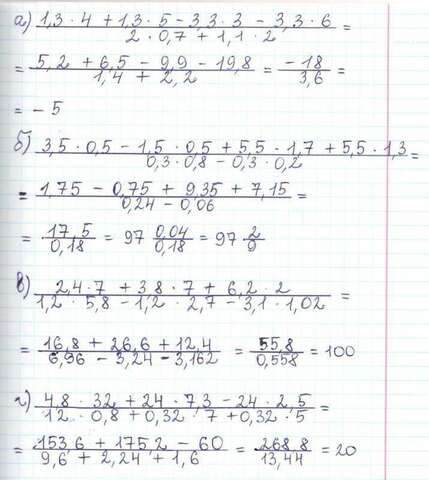 а) (1,3 · 4 + 1,3 · 5 - 3,3 · 3 - 3,3 · 6) / (2 · 0,7 + 1,1 · 2) =
= (5,2 + 6,5 - 9,9 - 19,8) / (1,4 + 2,2) = (-18) / (3,6) =
= - 5
б) (3,5 · 0,5 - 1,5 · 0,5 + 5,5 · 1,7 + 5,5 · 1,3) / (0,3 · 0,8 - 0,3 · 0,2) =
= (1,75 - 0,75 + 9,35 + 7,15) / (0,24 - 0,06) =
= 17,5 / 0,18 = 97 0,04/0,18 = 97 2/9
в) (2,4 · 7 + 3,8 · 7 + 6,2 · 2) / (1,2 · 5,8 - 1,2 · 2,7 - 3,1 · 1,02) =
= (16,8 + 26,6 + 12,4) / (6,96 - 3,24 - 3,162) = 55,8 / 0,558 = 100
г) (4,8 · 32 + 24 · 7,3 - 24 · 2,5) / (12 · 0,8 + 0,32 · 7 + 0,32 · 5) =
= (153,6 + 175,2 - 60) / (9,6 + 2,24 + 1,6) = 268,8 / 13,44 = 20